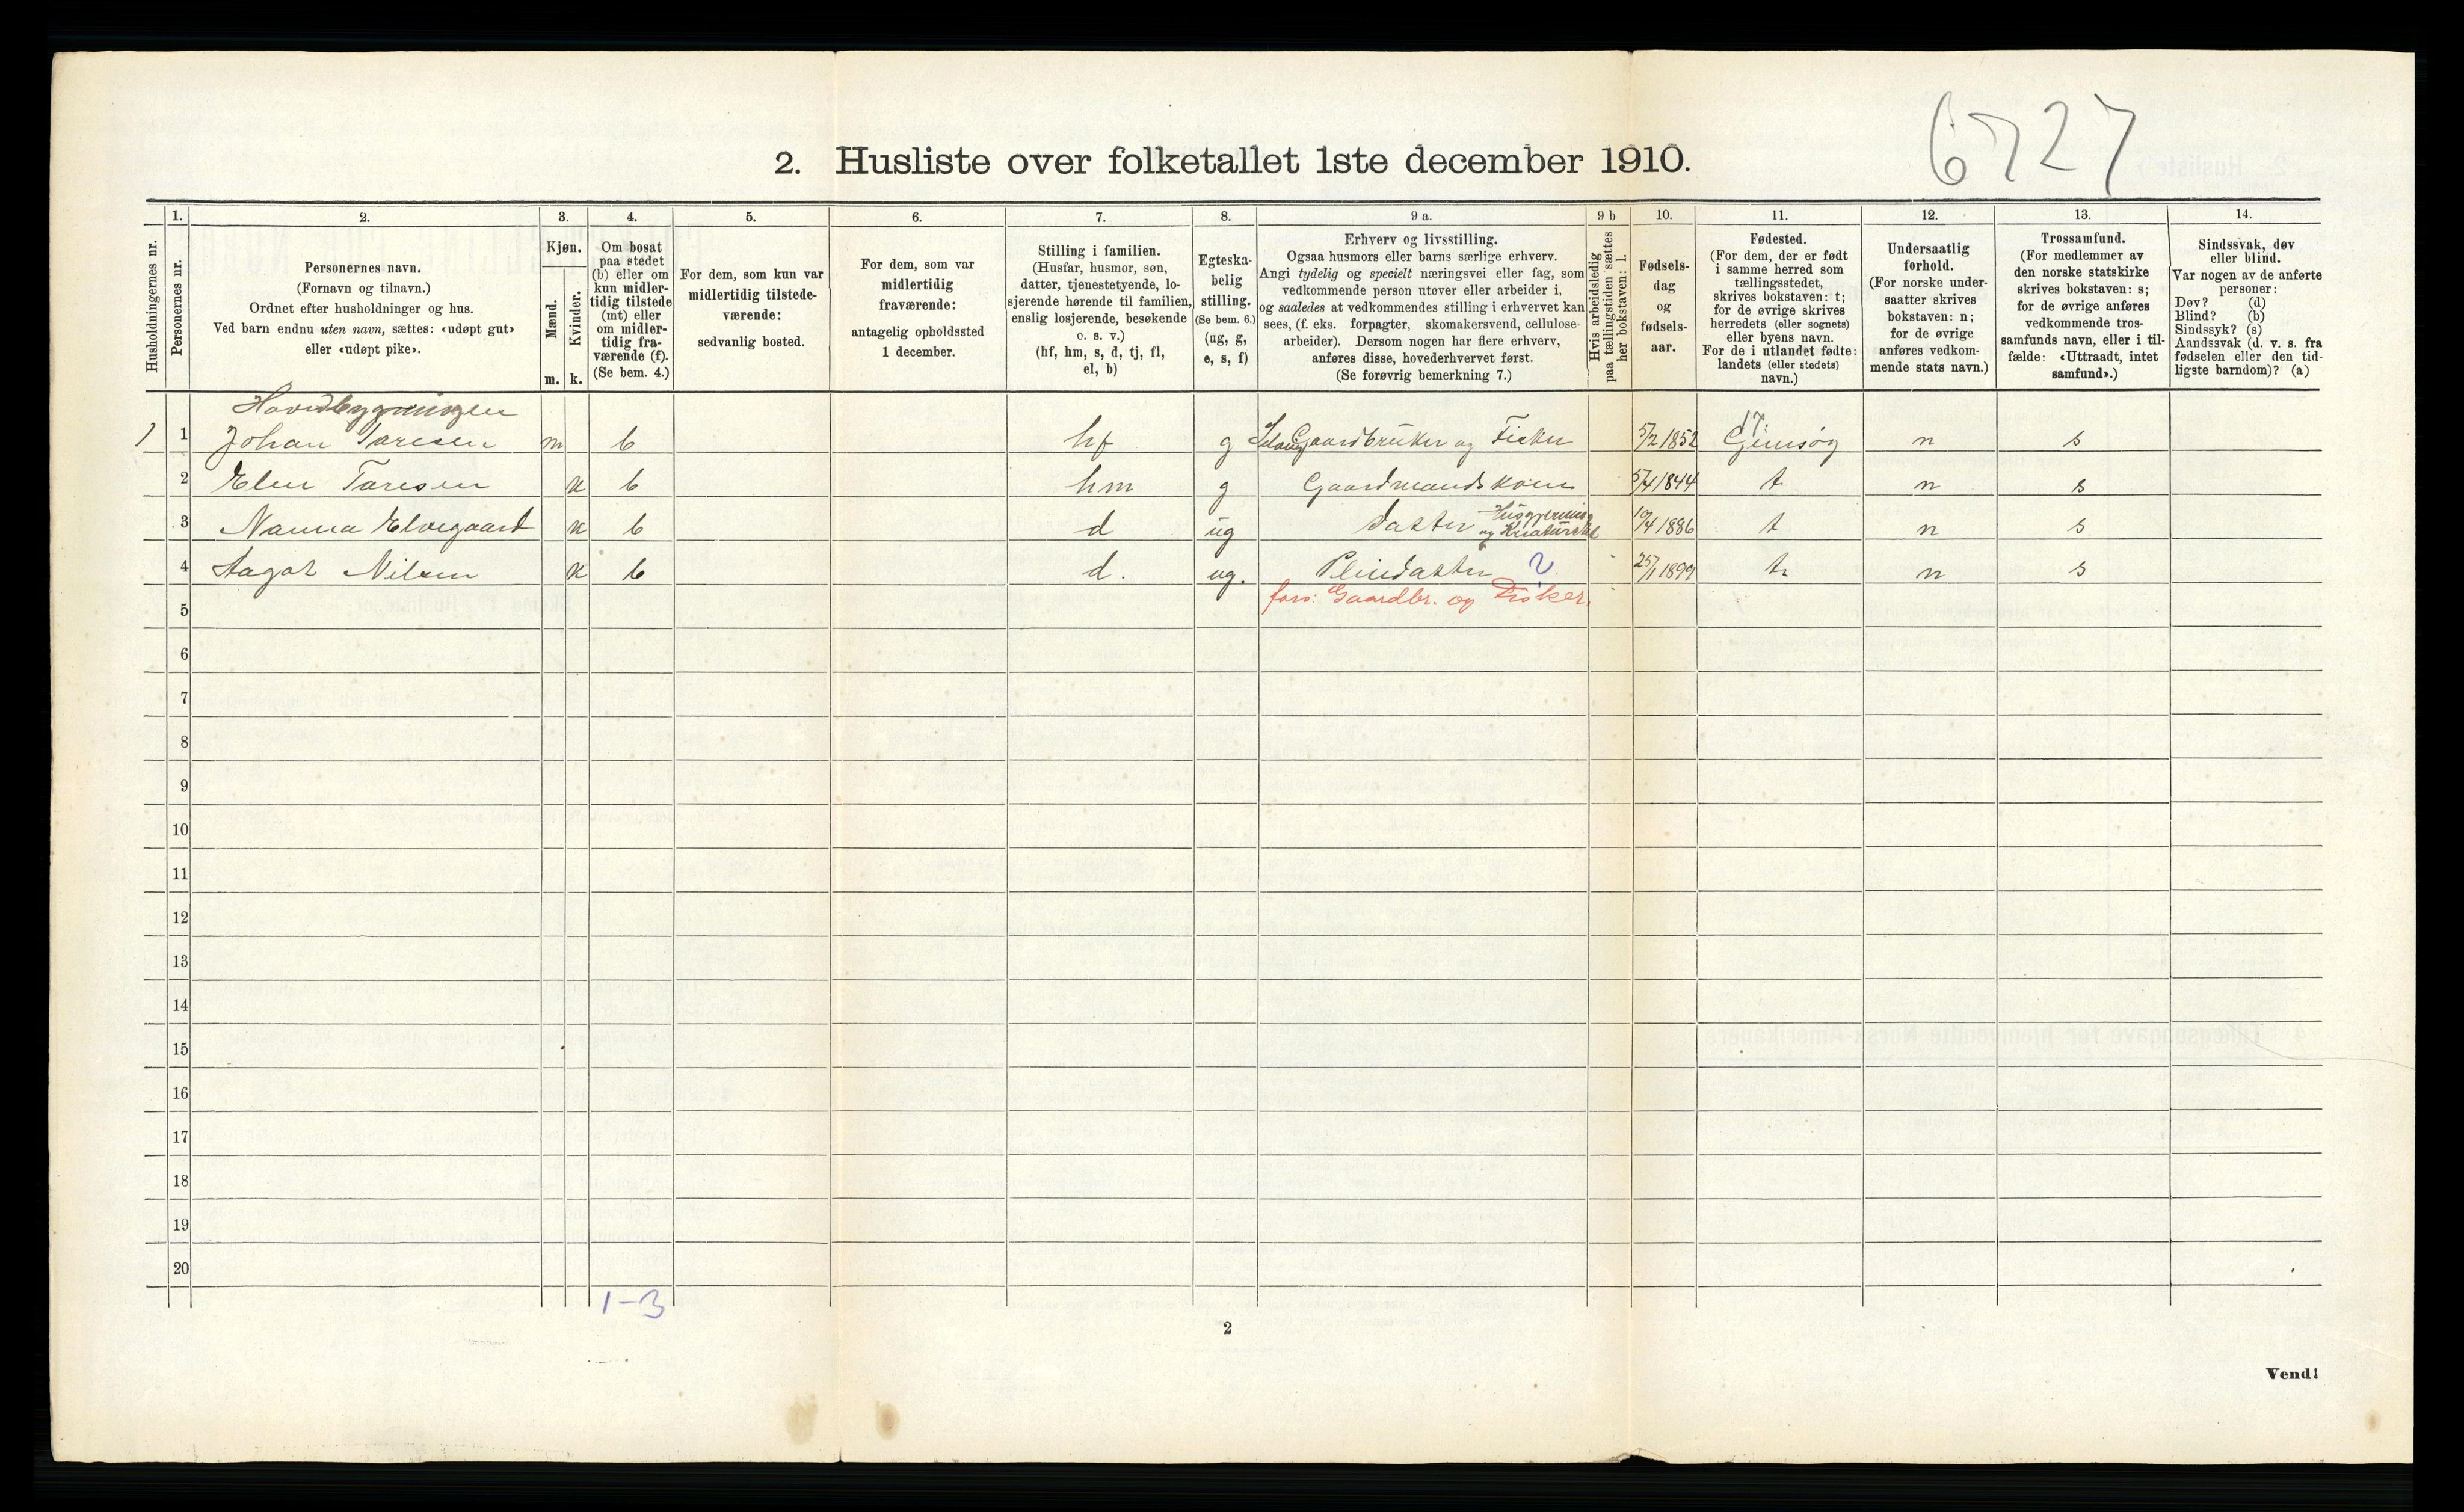 6727
2. Husliste over folketallet 1ste december 1910.
Husholdningernes nr.
1.
Personernes nr.
2.
Personernes navn.
(Fornavn og tilnavn.)
Ordnet efter husholdninger og hus.
Ved barn endnu uten navn, sættes: «udøpt gut»
eller «udøpt pike».
3.
Kjøn.
Mænd.
Kvinder.
m. k.
4.
Om bosat
paa stedet
(b) eller om
kun midler-
tidig tilstede
(mt) eller
om midler-
tidig fra-
værende (f).
(Se bem. 4.)
5.
For dem, som kun var
midlertidig tilstede-
værende:
sedvanlig bosted.
6.
For dem, som var
midlertidig
fraværende:
antagelig opholdssted
1 december.
7.
Stilling i familien.
(Husfar, husmor, søn,
datter, tjenestetyende, lo-
sjerende hørende til familien,
enslig losjerende, besøkende
o. s. v.)
(hf, hm, s, d, tj, fl,
el, b)
8.
Egteska-
belig
stilling.
(Se bem. 6.)
(ug, g,
e, s, f)
9 a.
Erhverv og livsstilling.
Ogsaa husmors eller barns særlige erhverv.
Angi tydelig og specielt næringsvei eller fag, som
vedkommende person utøver eller arbeider i,
og saaledes at vedkommendes stilling i erhvervet kan
sees, (f. eks. forpagter, skomakersvend, cellulose-
arbeider). Dersom nogen har flere erhverv,
anføres disse, hovederhvervet først.
(Se forøvrig bemerkning 7.)
9 b
Hvis arbeidsledig
paa tællingstiden sættes
her bokstaven: l.
10.
Fødsels-
dag
og
fødsels-
aar.
11.
Fødested.
(For dem, der er født
i samme herred som
tællingsstedet,
skrives bokstaven: t;
for de øvrige skrives
herredets (eller sognets)
eller byens navn.
For de i utlandet fødte:
landets (eller stedets)
navn.)
12.
Undersaatlig
forhold.
(For norske under-
saatter skrives
bokstaven: n;
for de øvrige
anføres vedkom-
mende stats navn.)
13.
Trossamfund.
(For medlemmer av
den norske statskirke
skrives bokstaven: s;
for de øvrige anføres
vedkommende tros-
samfunds navn, eller i til-
fælde: «Uttraadt, intet
samfund».)
14.
Sindssvak, døv
eller blind.
Var nogen av de anførte
personer:
Døv? (d)
Blind? (b)
Sindssyk? (s)
Aandssvak (d. v. s. fra
fødselen eller den tid-
ligste barndom)? (a)
Hovedbygningen
17.
1 1 Johan Taresen m b hf g Selveig Gaardbruker og Fisker 5/2 1852 Gimsøy n s
2 Elen Taresen k b hm g Gaardmandskone 5/4 1844 t n s
3 Nanna Elvegaard k b d ug Datter Husgjerning og Kreaturstel 19/4 1886 t n s
4 Aagot Nilsen k b d. ug. Pleiedatter ? 25/1 1899 t n s
5 fars: Gaardbr. og Fisker.
6
7
8
9
10
11
12
13
14
15
16
17
18
19
20
1-3
2
Vend!